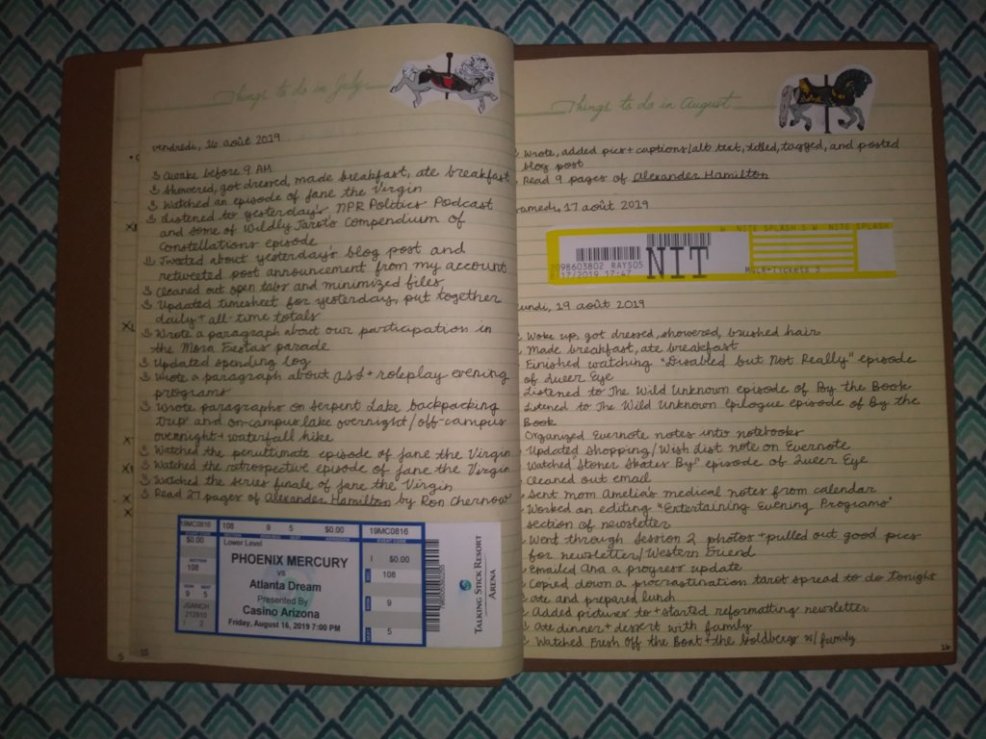 Things to do in July
vendredi, 16 août 2019
Awake before 9 AM
Showered, got dressed, made breakfast, ate breakfast
Watched an episode of Jane the Virgin
Listened to yesterday's NPR Politics Podcast
and some of Wildly Tarot's Compendium of
Constellations episode
Tweeted about yesterday's blog post and
retweeted post announcement from my account
Cleaned out open tabs and minimized files
Updated timesheet for yesterday, put together
daily + all-time totals
Wrote a paragraph about our participation in
the Mora Fiestas parade
Updated spending log
Wrote a paragraph about asd + roleplay evening
programs
Wrote paragraphs on Serpent Lake backpacking
trip and on-campus lake overnight/off-campus
overnight + waterfall hike
Watched the penultimate episode of Jane the Virgin
Watched the retrospective episode of Jane the Virgin
Watched the series finale of Jane the Virgin
Read 27 pages of Alexander Hamilton by Ron Chernow
19MC0816 108 9 5 $0.00 19MC0816
$0.00
Lower Level
108
9 5
PHOENIX MERCURY
vs
Atlanta Dream
Presented By
Casino Arizona
Friday, August 16, 2019 7:00 PM
$0.00
108
9
5
TALKING STICK RESORT
ARENA
Things to do in August
Wrote, added pics + captions/alt text, titled, tagged, and posted
blog post
Read 9 pages of Alexander Hamilton
samedi, 17 août 2019
NITE SPLASH
98603802 RAYS05
17/2019 17:47
NIT
lundi, 19 août 2019
Woke up, got dressed, showered, brushed hair
Made breakfast, ate breakfast
Finished watching "Disabled but Not Really" episode
of Queer Eye
Listened to The Wild Unknown episode of By the Book
Listened to The Wild Unknown Epilogue episode of By the
Book
Organized Evernote notes into notebooks
Updated shopping/Wish list note on Evernote
Watched Stoner Skates By" episode of Queer Eye
Cleaned out email
Sent mom Amelia's medical notes from calendar
Worked on editing "Entertaining Evening Programs"
section of newsletter
Went through Session 2 photos + pulled out good pics
for newsletter/Western Friend
Emailed Ana a progress update
Copied down a procrastination tarot spread to do tonight
ate and prepared lunch
Added pictures to + started reformatting newsletter
Ate dinner + dessert with family
Watched Fresh Off the Boat + the Goldbergs w/ family